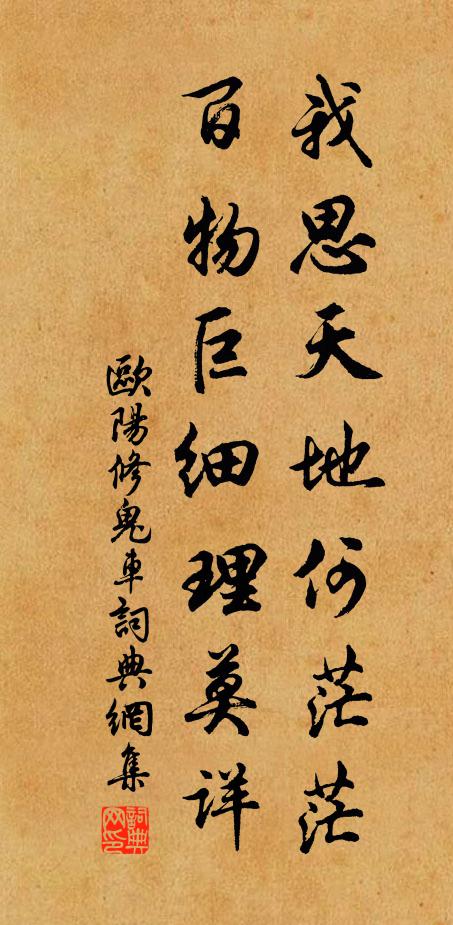 我思天地何茫茫
百物巨细理莫详
歐陽修鬼車詞典網集
詞典
网印